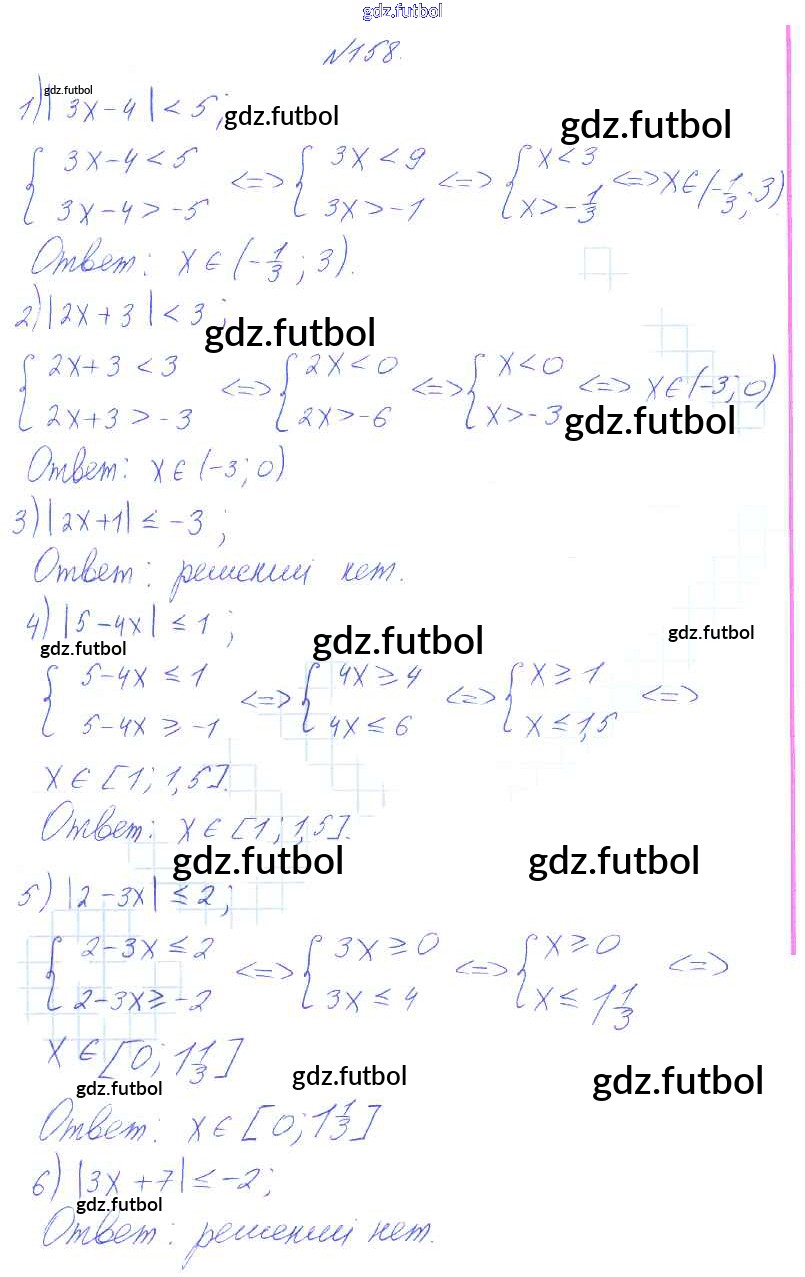 gdz.futbol
№158.
gdz.futbol
1) |3x-4|<5; gdz.futbol gdz.futbol
{ 3x-4<5 ; 3x-4>-5 <=> { 3x<9 ; 3x>-1 <=> { x<3 ; x>-1/3 <=> x∈(-1/3; 3)
Ответ: x∈(-1/3; 3).
2) |2x+3|<3; gdz.futbol
{ 2x+3<3 ; 2x+3>-3 <=> { 2x<0 ; 2x>-6 <=> { x<0 ; x>-3 <=> x∈(-3; 0)
gdz.futbol
Ответ: x∈(-3; 0)
3) |2x+1|≤-3;
Ответ: решений нет.
4) |5-4x|≤1;
gdz.futbol gdz.futbol gdz.futbol
{ 5-4x≤1 ; 5-4x≥-1 <=> { 4x≥4 ; 4x≤6 <=> { x≥1 ; x≤1,5 <=>
x∈[1; 1,5].
Ответ: x∈[1; 1,5].
gdz.futbol gdz.futbol
5) |2-3x|≤2;
{ 2-3x≤2 ; 2-3x≥-2 <=> { 3x≥0 ; 3x≤4 <=> { x≥0 ; x≤1 1/3 <=>
x∈[0; 1 1/3]
gdz.futbol gdz.futbol gdz.futbol
Ответ: x∈[0; 1 1/3]
6) |3x+7|≤-2;
gdz.futbol
Ответ: решений нет.